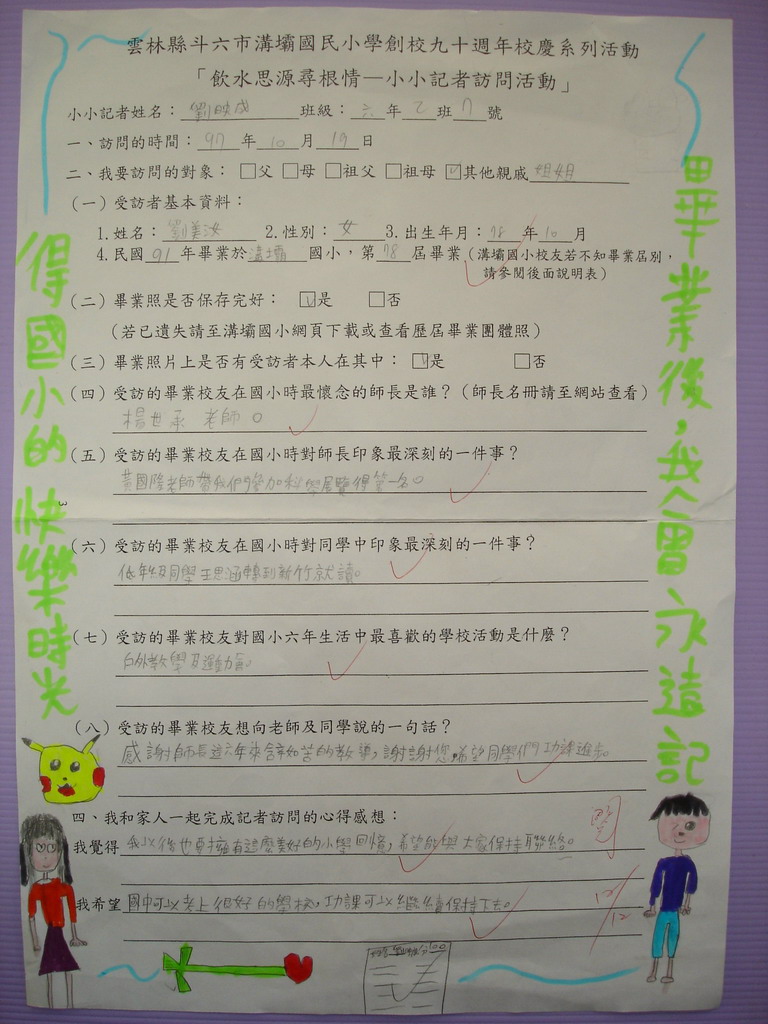 雲林縣斗六市溝壩國民小學創校九十週年校慶系列活動
「飲水思源尋根情—小小記者訪問活動」
小小記者姓名：劉映成 班級：六年乙班7號
一、訪問的時間：97年10月19日
二、我要訪問的對象：□父 □母 □祖父 □祖母 ☑其他親戚 姐姐
（一）受訪者基本資料：
1.姓名：劉美汝 2.性別：女 3.出生年月：78年10月
4.民國91年畢業於溝壩國小，第78屆畢業（溝壩國小校友若不知畢業屆別，
請參閱後面說明表）
（二）畢業照是否保存完好：☑是 □否
（若已遺失請至溝壩國小網頁下載或查看歷屆畢業團體照）
（三）畢業照片上是否有受訪者本人在其中：☑是 □否
（四）受訪的畢業校友在國小時最懷念的師長是誰？（師長名冊請至網站查看）
楊世承 老師。
（五）受訪的畢業校友在國小時對師長印象最深刻的一件事？
黃國隆老師帶我們參加科學展覽得第一名。
3
（六）受訪的畢業校友在國小時對同學中印象最深刻的一件事？
低年級同學王思涵轉到新竹就讀。
（七）受訪的畢業校友對國小六年生活中最喜歡的學校活動是什麼？
戶外教學及運動會。
（八）受訪的畢業校友想向老師及同學說的一句話？
感謝師長這六年來含辛如苦的教導，謝謝您，希望同學們功課進步。
四、我和家人一起完成記者訪問的心得感想：
我覺得 我以後也要擁有這麼美好的小學回憶，希望能與大家保持聯絡。
我希望 國中可以考上很好的學校，功課可以繼續保持下去。
12/12
畢業後，我會永遠記
得國小的快樂時光